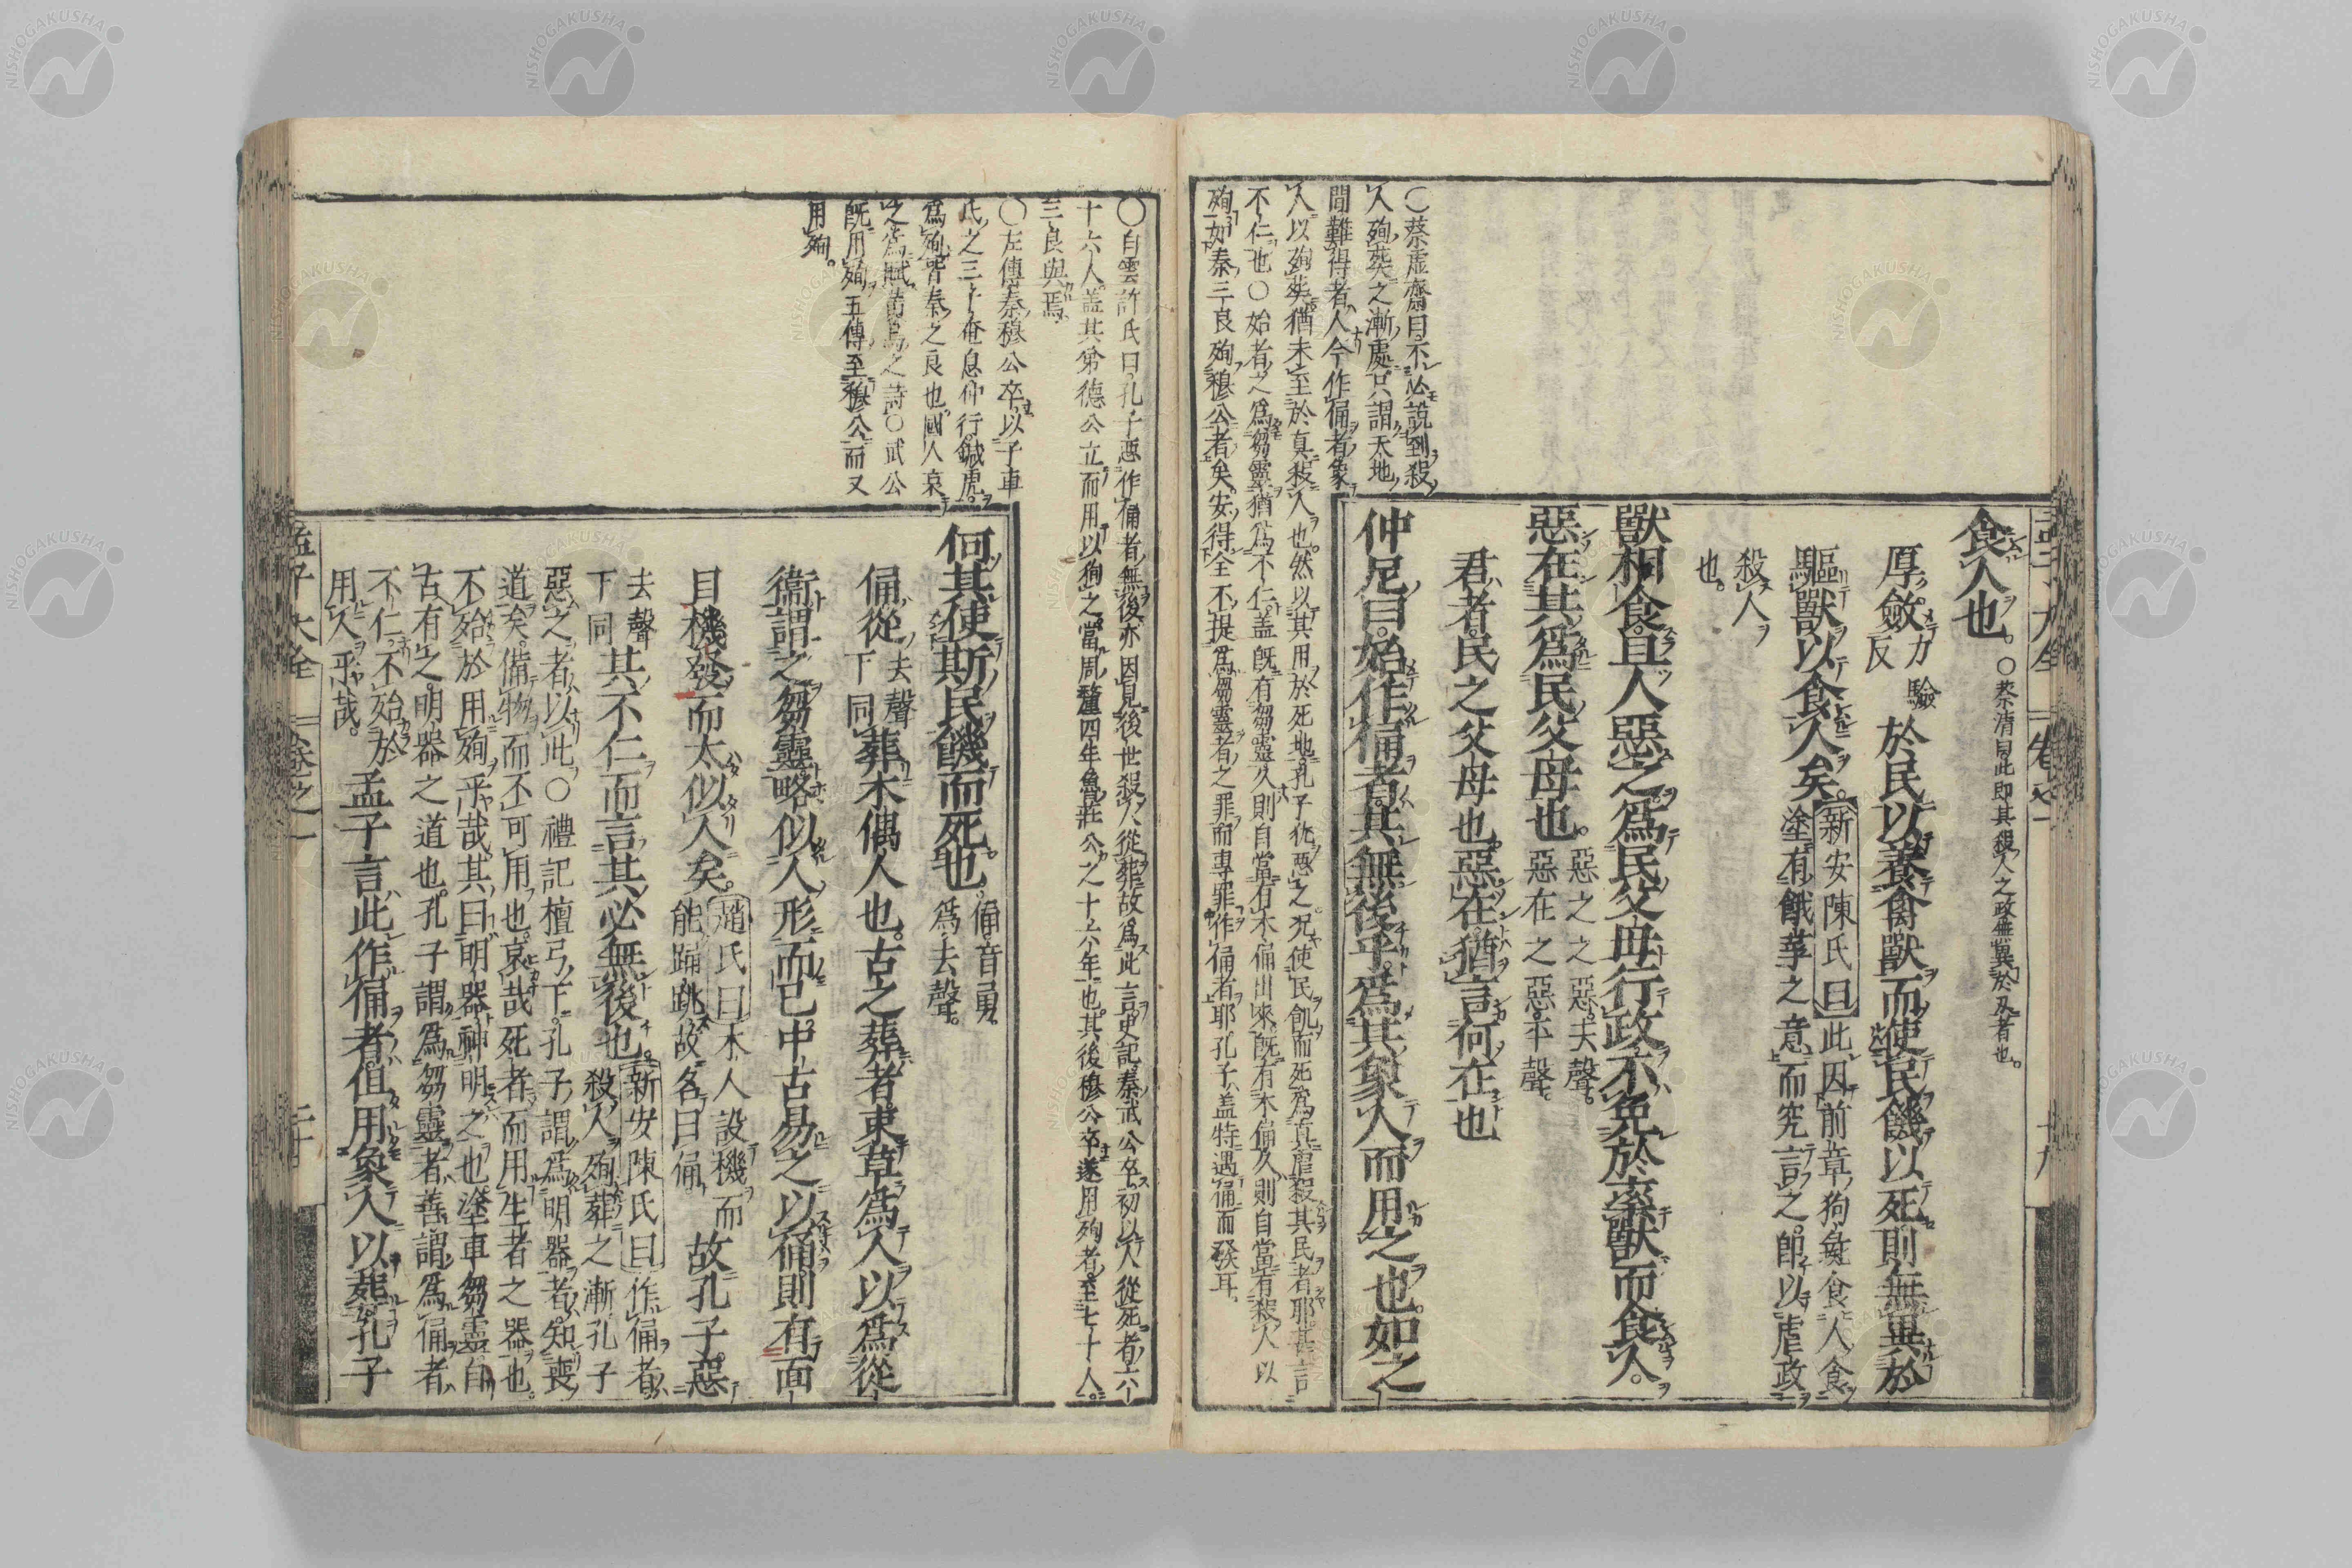 孟子大全 卷之一 十九
食人也。○蔡清曰此即其殺人之政無異於刃者也。
厚斂力驗反於民以養禽獸而使民饑以死則無異於
驅獸以食人矣。新安陳氏曰此因前章狗彘食人食
塗有餓莩之意而究言之。即以虐政
殺人
也。
獸相食且人惡之爲民父母行政不免於率獸而食人。
惡在其爲民父母也。惡之之惡去聲。
惡在之惡平聲。
君者民之父母也惡在猶言何在也
仲尼曰始作俑者其無後乎爲其象人而用之也如之
○蔡虛齋曰不必說到殺
人殉葬之漸處只謂天地
間難得者人今作俑者象
人以殉葬猶未至於真殺人也然以其用於死地孔子猶惡之況使民飢而死爲真虐殺其民者耶其言
不仁也○始者之爲芻靈猶爲不仁盖既有芻靈久則自當有木俑出來既有木俑久則自當有殺人以
殉如秦三良殉穆公者矣安得全不提爲芻靈者之罪而專罪作俑者耶孔子盖特遇俑而發耳。
○白雲許氏曰孔子惡作俑者無後亦因見後世殺人從葬故爲此言史記秦武公卒初以人從死者六
十六人盖其弟德公立而用以狥之當周釐四年魯莊公之十六年也其後穆公卒遂用殉者至七十人
三良與焉
○左傳秦穆公卒以子車
氏之三子奄息仲行鍼虎
爲殉皆秦之良也國人哀
之爲賦黃鳥之詩○武公
既用殉五傳至穆公而又
用殉。
何其使斯民饑而死也。俑音勇。
爲去聲。
俑從去聲下同葬木偶人也。古之葬者束草爲人以爲從
衛謂之芻靈略似人形而已中古易之以俑則有面
目機發而太似人矣。趙氏曰木人設機而
能踊跳故名曰俑故孔子惡
去聲下同其不仁而言其必無後也。新安陳氏曰作俑者
殺人殉葬之漸孔子
惡之者以此○禮記檀弓下孔子謂爲明器者知喪
道矣備物而不可用也哀哉死者而用生者之器也
不殆於用殉乎哉其曰明器神明之也塗車芻靈自
古有之明器之道也孔子謂爲芻靈者善謂爲俑者
不仁不殆於
用人乎哉。孟子言此作俑者但用象人以葬孔子
孟子大全 卷之一 二十